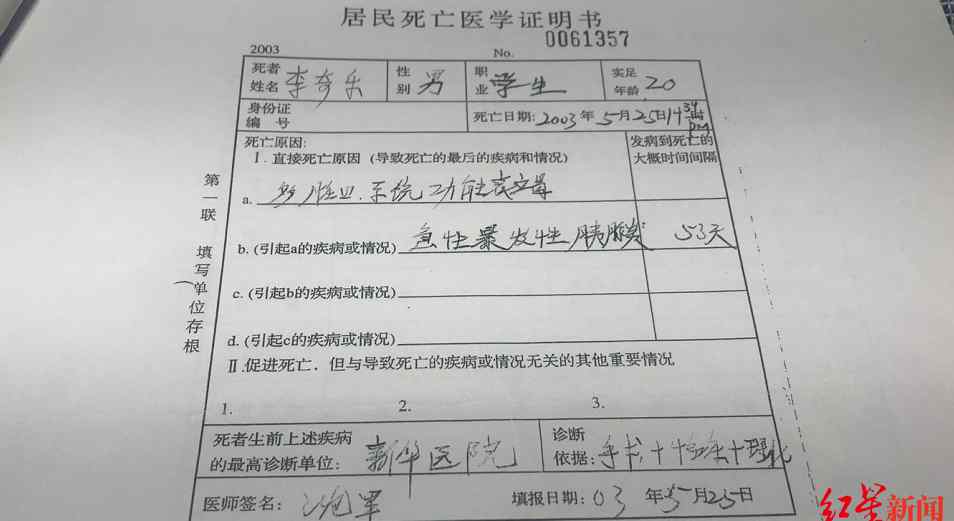 居民死亡医学证明书
2003 No. 0061357
死者姓名 李奇乐 性别 男 职业 学生 实足年龄 20
身份证编号 死亡日期: 2003 年 5 月 25 日 14 34 时 pm
死亡原因: 发病到死亡的大概时间间隔
I. 直接死亡原因 (导致死亡的最后的疾病和情况)
a. 系统功能衰竭
b. (引起a的疾病或情况) 急性暴发性胰腺炎 53天
c. (引起b的疾病或情况)
d. (引起c的疾病或情况)
II.促进死亡,但与导致死亡的疾病或情况无关的其他重要情况
1. 2. 3.
死者生前上述疾病的最高诊断单位: 新华医院 诊断依据: 手术+临床+理化
医师签名: 填报日期: 03 年 5 月 25 日
第一联 填写单位存根
红星新闻